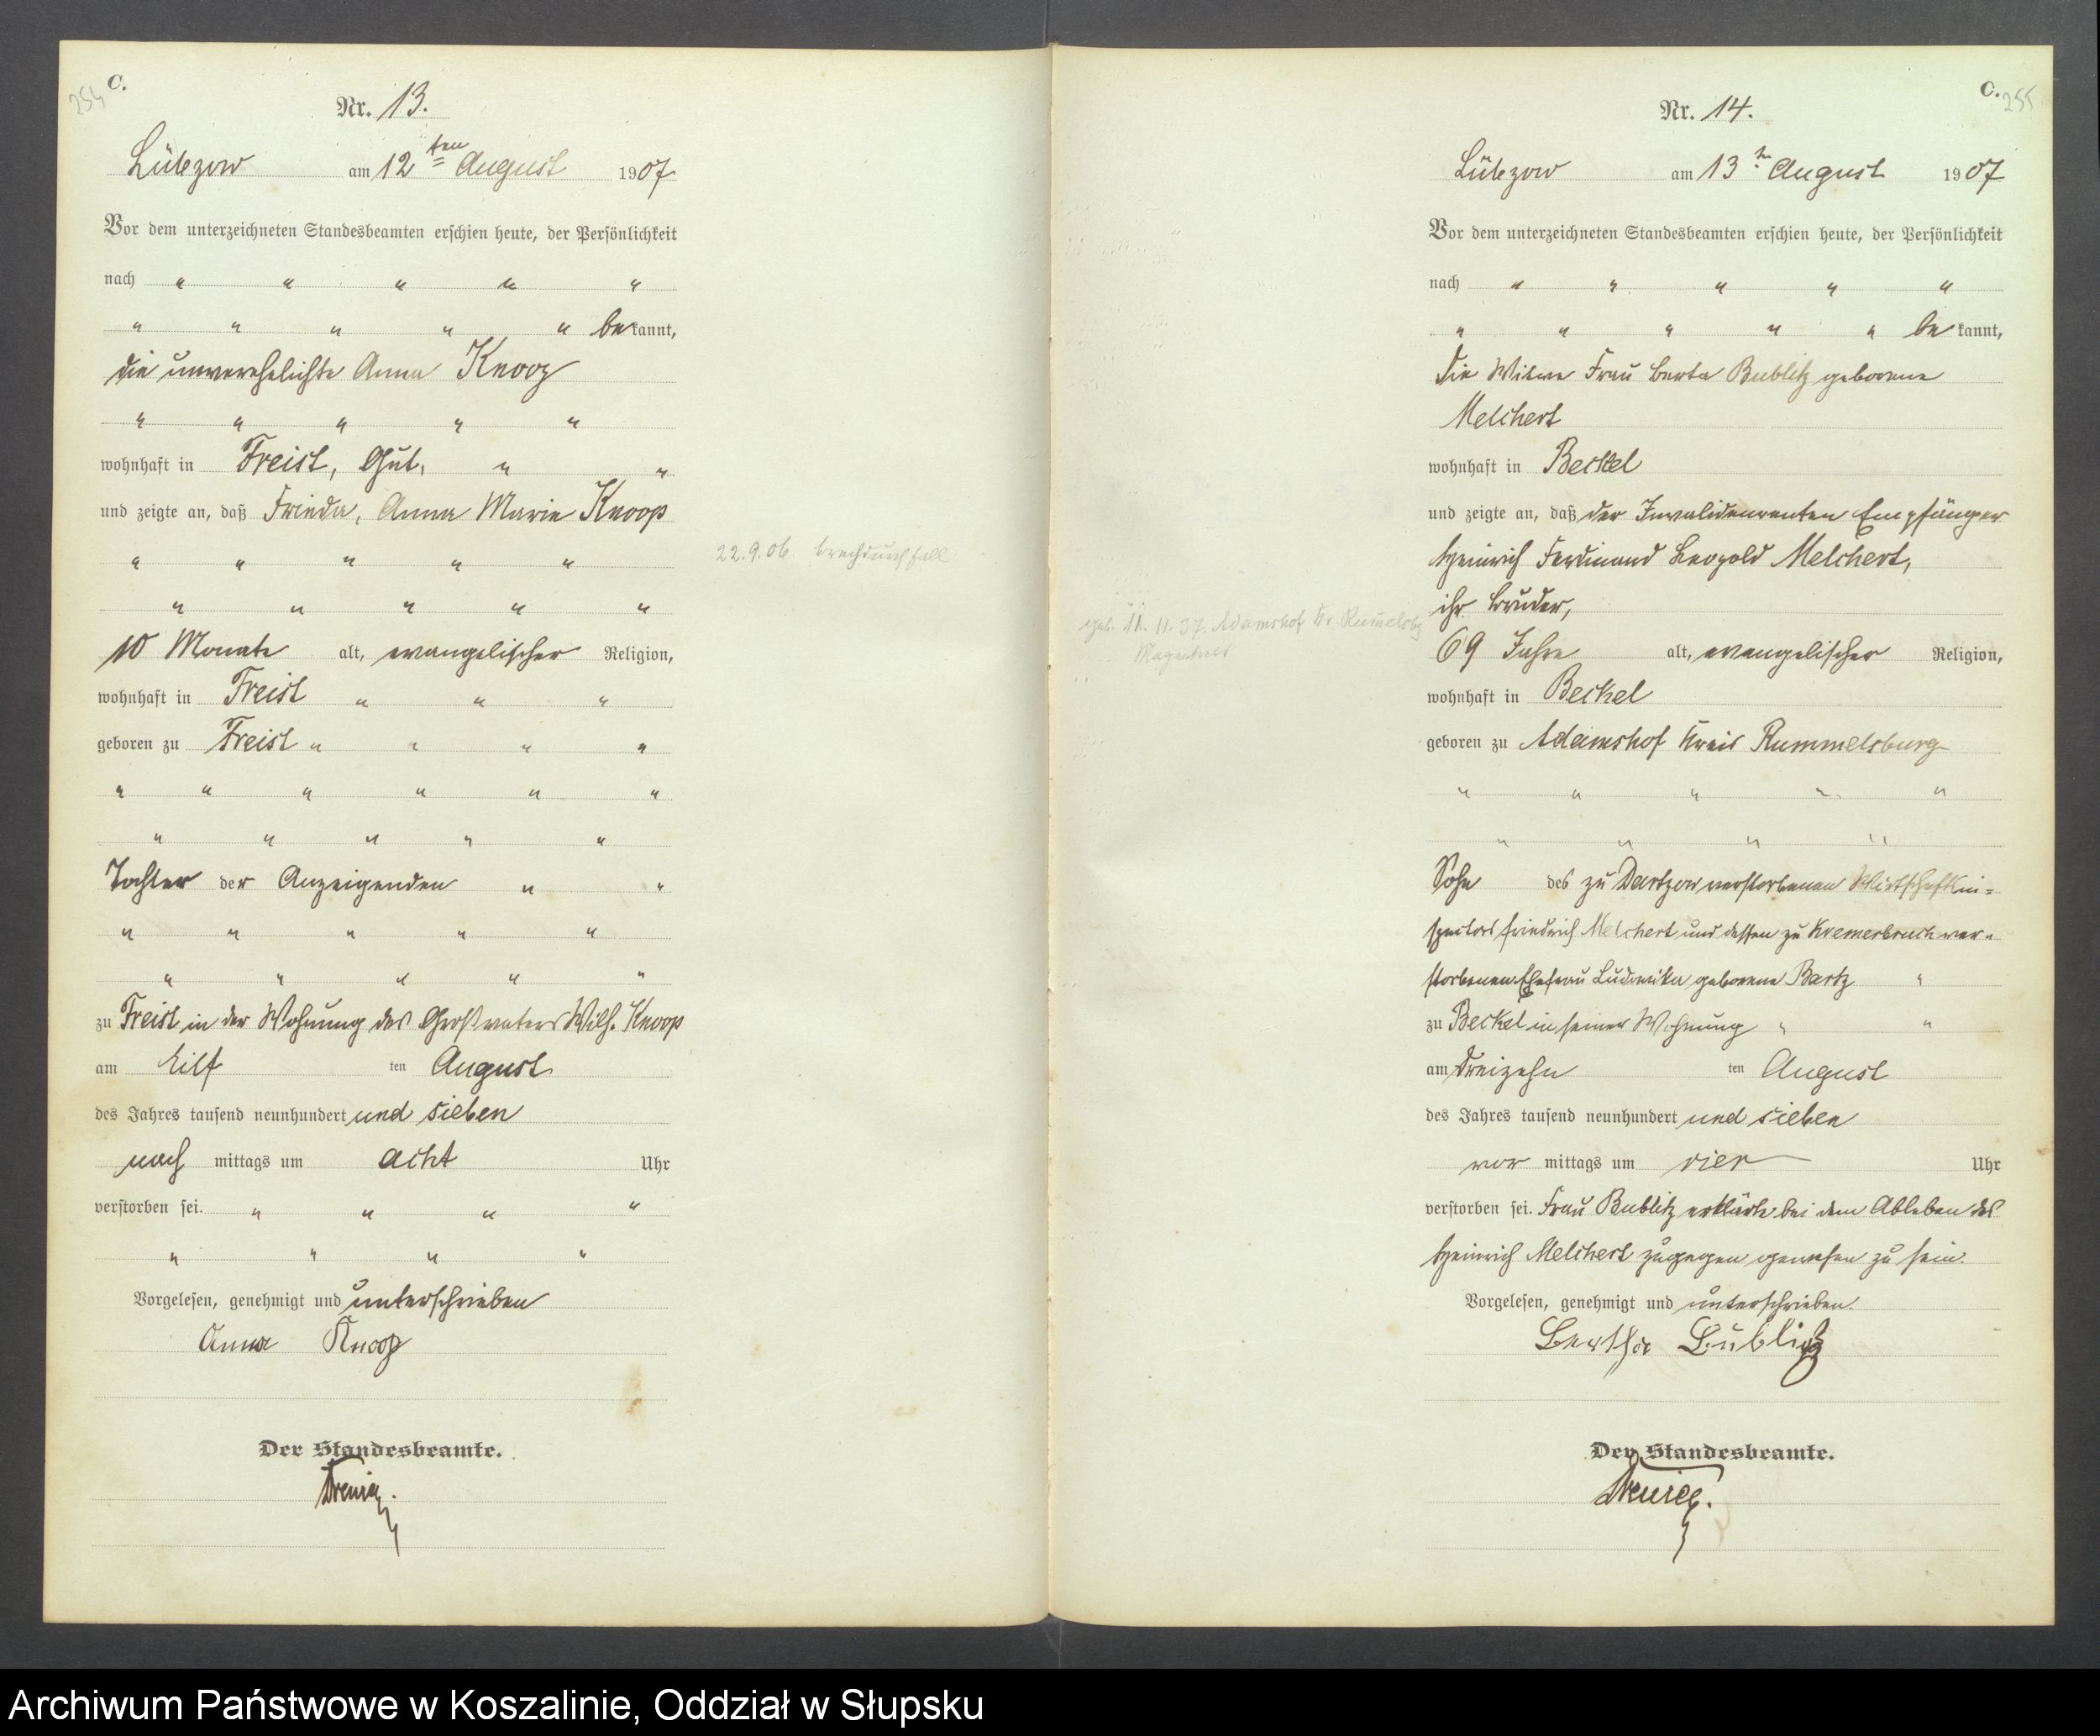 254
C.
Nr. 13.
Lübzow am 12ten August 1907
Vor dem unterzeichneten Standesbeamten erschien heute, der Persönlichkeit
nach " " " " "
" " " " " bekannt,
die unverehelichte Anna Knoop
" " " " "
wohnhaft in Freist, Gut, " "
und zeigte an, daß Frieda, Anna Marie Knoop
" " " " "
22.9.06 Brechdurchfall
" " " " "
10 Monate alt, evangelischer Religion,
wohnhaft in Freist " " "
geboren zu Freist " " " "
" " " " " "
" " " " "
Tochter der Anzeigenden " "
" " " " "
" " " " "
zu Freist in der Wohnung des Großvaters Wilh. Knoop
am Eilf ten August
des Jahres tausend neunhundert und sieben
nach mittags um acht Uhr
verstorben sei. " " " "
" " " "
Vorgelesen, genehmigt und unterschrieben
Anna Knoop
Der Standesbeamte.
C.
255
Nr. 14.
Lübzow am 13ten August 1907
Vor dem unterzeichneten Standesbeamten erschien heute, der Persönlichkeit
nach " " " " "
" " " " " bekannt,
die Witwe Frau Berta Bublitz geborene
Melchert
wohnhaft in Beckel
und zeigte an, daß der Invalidenrenten Empfänger
Heinrich Ferdinand Leopold Melchert,
ihr Bruder,
geb. 11.11.37. Adamshof Kr. Rummelsbg
69 Jahre alt, evangelischer Religion,
wohnhaft in Beckel
geboren zu Adamshof Kreis Rummelsburg
" " " " "
" " " "
Sohn des zu Dartzow verstorbenen Wirtschaftsin=
spectors Friedrich Melchert und dessen zu Kremerbruch ver=
storbenen Ehefrau Ludowika geborene Bartz "
zu Beckel in seiner Wohnung " "
am dreizehn ten August
des Jahres tausend neunhundert und sieben
vor mittags um vier Uhr
verstorben sei. Frau Bublitz erklärte bei dem Ableben des
Heinrich Melchert zugegen gewesen zu sein.
Vorgelesen, genehmigt und unterschrieben.
Bertha Bublitz
Der Standesbeamte.
Archiwum Państwowe w Koszalinie, Oddział w Słupsku